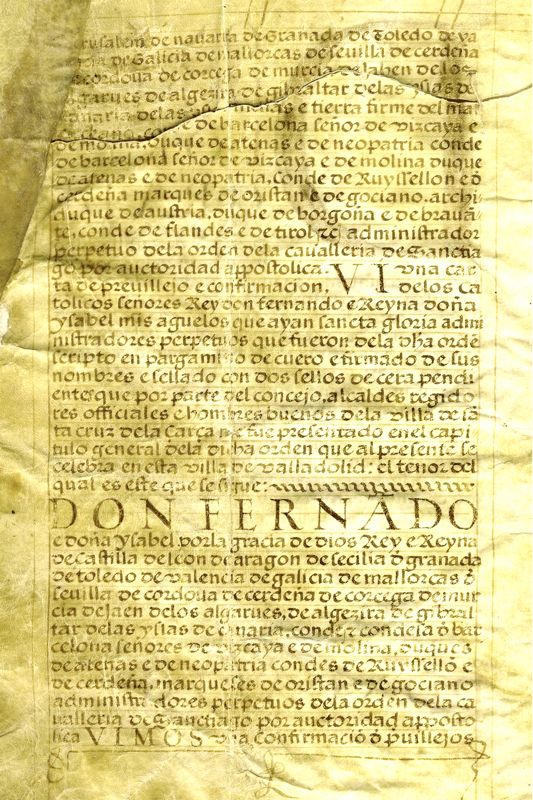 jerusalem de navarra de Granada de Toledo de va
de Galicia de mallorcas de sevilla de cerdeña
cordova de corcega de murcia de Jahen de los
algarves de algezira de gibraltar delas yslas de
canaria delas yndias e tierra firme del mar
oceano, conde de barcelona señor de vizcaya e
de molina, duque de atenas e de neopatria conde
de barcelona señor de vizcaya e de molina duque
de atenas e de neopatria, conde de Ruyssellon e đ
cerdeña marques de oristan e de gociano. archi
duque de austria, duque de borgoña e de bravā
te, conde de flandes e de tirol ⁊c administrador
perpetuo dela orden dela cavalleria de Sanctia
go por auctoridad appostolica. VI una car
ta de previllejo e confirmacion, delos ca
tolicos señores Rey don fernando e Reyna doña
ysabel mis aguelos que ayan sancta gloria admi
nistradores perpetuos que fueron dela dha orde
scripto en pargamino de cuero e firmado de sus
nombres e sellado con dos sellos de cera pendi
entes que por parte del concejo, alcaldes regido
res officiales e hombres buenos dela villa de sā
ta cruz dela Carça me fue presentado enel capi
tulo general dela dicha orden que al presente se
celebra en esta villa de valladolid: el tenor del
qual es este que se sigue:
DON FERNĀDO
e doña ysabel, por la gracia de dios Rey e Reyna
de Castilla de leon de aragon de secilia đ granada
de toledo de valencia de galicia de mallorcas đ
sevilla de cordova de cerdeña de corcega de mur
cia de Jaen delos algarves, de algezira de gibral
tar delas yslas de canaria, conde ⁊ condesa đ bar
celona señores de vizcaya e de molina, duques
de atenas e de neopatria condes de Ruyssellō e
de cerdeña, marqueses de oristan e de gociano
administradores perpetuos dela orden dela ca
valleria de Sanctiago por auctoridad apposto
lica VIMOS una confirmació đ pvillejos